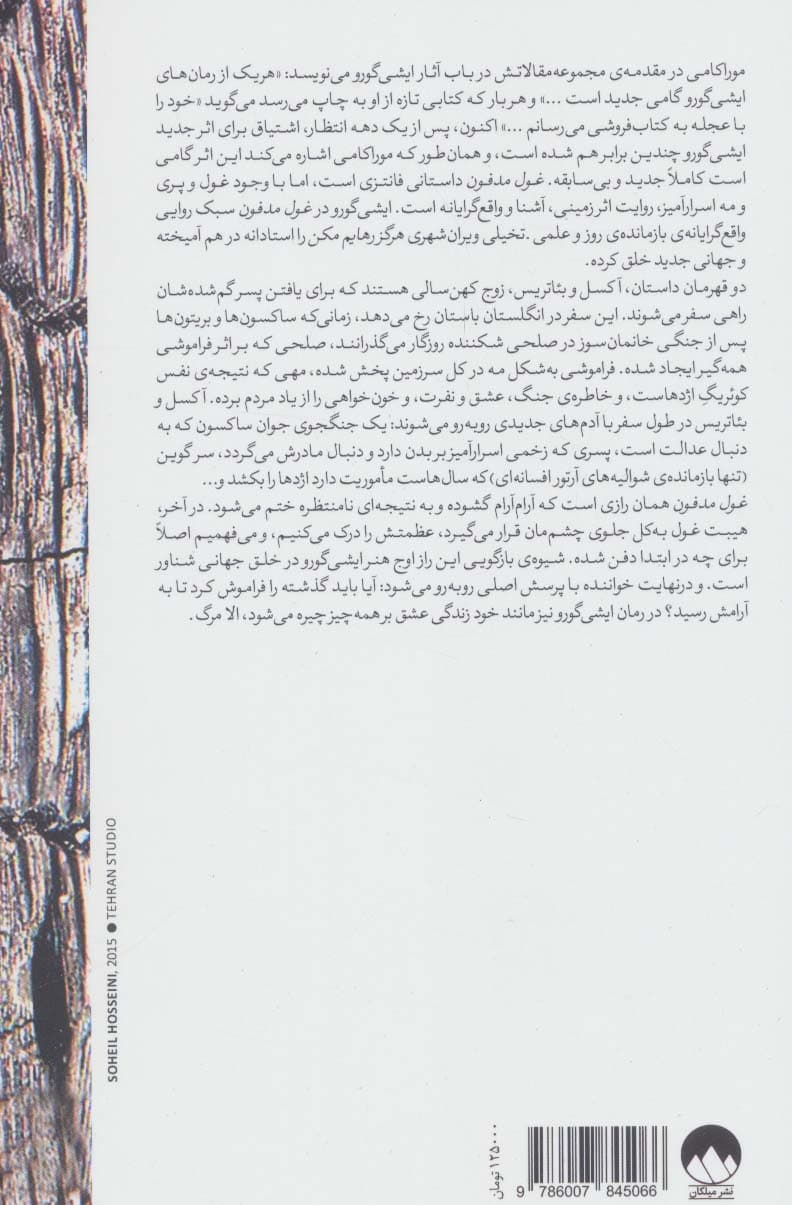 موراکامی در مقدمه‌ی مجموعه‌مقالاتش در باب آثار ایشی‌گورو می‌نویسد: «هریک از رمان‌های
ایشی‌گورو گامی جدید است ...» و هر بار که کتابی تازه از او به چاپ می‌رسد می‌گوید «خود را
با عجله به کتاب‌فروشی می‌رسانم ...» اکنون، پس از یک دهه انتظار، اشتیاق برای اثر جدید
ایشی‌گورو چندین برابر هم شده است، و همان‌طور که موراکامی اشاره می‌کند این اثر گامی
است کاملاً جدید و بی‌سابقه. غول مدفون داستانی فانتزی است، اما با وجود غول و پری
و مه اسرارآمیز، روایت اثر زمینی، آشنا و واقع‌گرایانه است. ایشی‌گورو در غول مدفون سبک روایی
واقع‌گرایانه‌ی بازمانده‌ی روز و علمی ـ تخیلی ویران‌شهری هرگز رهایم مکن را استادانه در هم آمیخته
و جهانی جدید خلق کرده.
دو قهرمان داستان، آکسل و بئاتریس، زوج کهن‌سالی هستند که برای یافتن پسر گم‌شده‌شان
راهی سفر می‌شوند. این سفر در انگلستان باستان رخ می‌دهد، زمانی‌که ساکسون‌ها و بریتون‌ها
پس از جنگی خانمان‌سوز در صلحی شکننده روزگار می‌گذرانند، صلحی که بر اثر فراموشی
همه‌گیر ایجاد شده. فراموشی به‌شکل مه در کل سرزمین پخش شده، مهی که نتیجه‌ی نفس
کوئریگِ اژدهاست، و خاطره‌ی جنگ، عشق و نفرت، و خون‌خواهی را از یاد مردم برده. آکسل و
بئاتریس در طول سفر با آدم‌های جدیدی روبه‌رو می‌شوند: یک جنگجوی جوان ساکسون که به
دنبال عدالت است، پسری که زخمی اسرارآمیز بر بدن دارد و دنبال مادرش می‌گردد، سر گوین
(تنها بازمانده‌ی شوالیه‌های آرتور افسانه‌ای) که سال‌هاست مأموریت دارد اژدها را بکشد و...
غول مدفون همان رازی است که آرام‌آرام گشوده و به نتیجه‌ای نامنتظره ختم می‌شود. در آخر،
هیبت غول به‌کل جلوی چشم‌مان قرار می‌گیرد، عظمتش را درک می‌کنیم، و می‌فهمیم اصلاً
برای چه در ابتدا دفن شده. شیوه‌ی بازگویی این راز اوج هنر ایشی‌گورو در خلق جهانی شناور
است. و درنهایت خواننده با پرسش اصلی روبه‌رو می‌شود: آیا باید گذشته را فراموش کرد تا به
آرامش رسید؟ در رمان ایشی‌گورو نیز مانند خود زندگی عشق بر همه چیز چیره می‌شود، الا مرگ.
SOHEIL HOSSEINI, 2015 ● TEHRAN STUDIO
۱۲۵۰۰۰ تومان
9 786007 845066
نشر میلکان